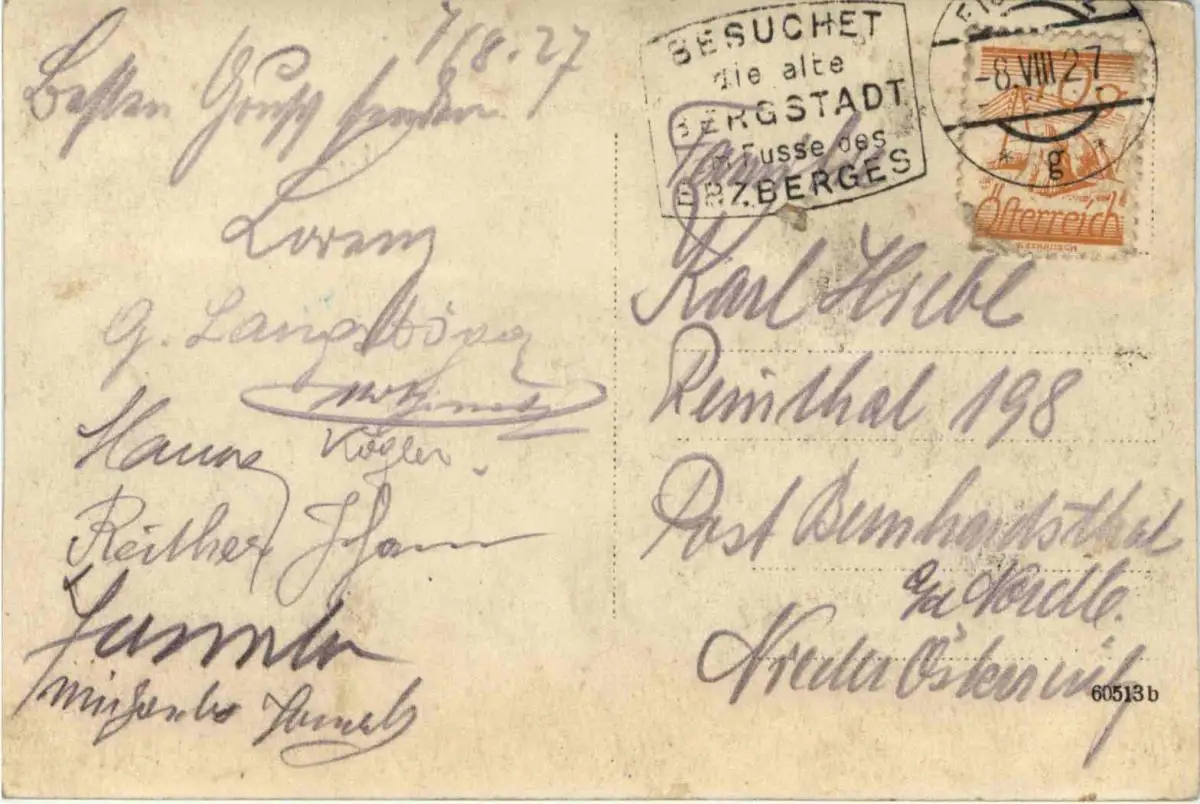 7/8.27
Besten Gruss senden
Lorenz
G. Langstöger
Kogler.
Reither Johann
BESUCHET
die alte
BERGSTADT
Fusse des
ERZBERGES
-8.VIII.27
* g *
10 g
Österreich
Familie
Karl Hiebl
Reinthal 198
Post Bernhardsthal
Nordb.
Nieder Österreich
60513b